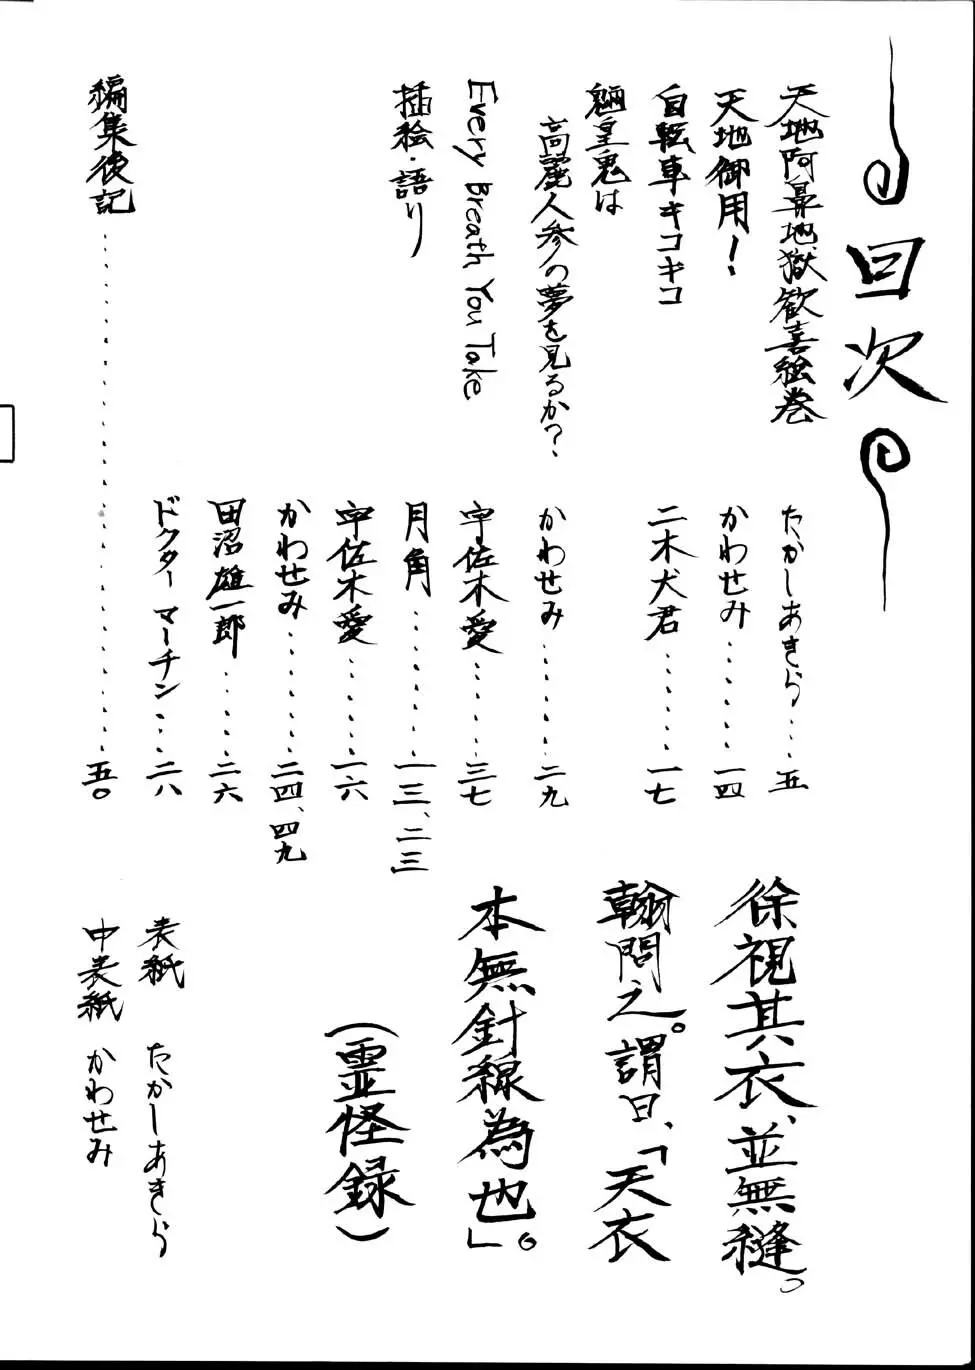 目次
天地阿鼻地獄歓喜絵巻
たかしあきら‥‥五
天地御用！
かわせみ‥‥‥‥一四
自転車キコキコ
二木犬君‥‥‥‥一七
魎皇鬼は
高麗人参の夢を見るか？
かわせみ‥‥‥‥二九
Every Breath You Take
宇佐木愛‥‥‥‥三七
挿絵・語り
月角‥‥‥‥一三、二三
宇佐木愛‥‥‥‥一六
かわせみ‥‥‥‥二四、四九
田沼雄一郎‥‥‥‥二六
ドクターマーチン‥‥二八
編集後記‥‥‥‥五〇
徐視其衣、並無縫。
翰問之。謂曰、「天衣
本無針線為也」。
（霊怪録）
表紙 たかしあきら
中表紙 かわせみ